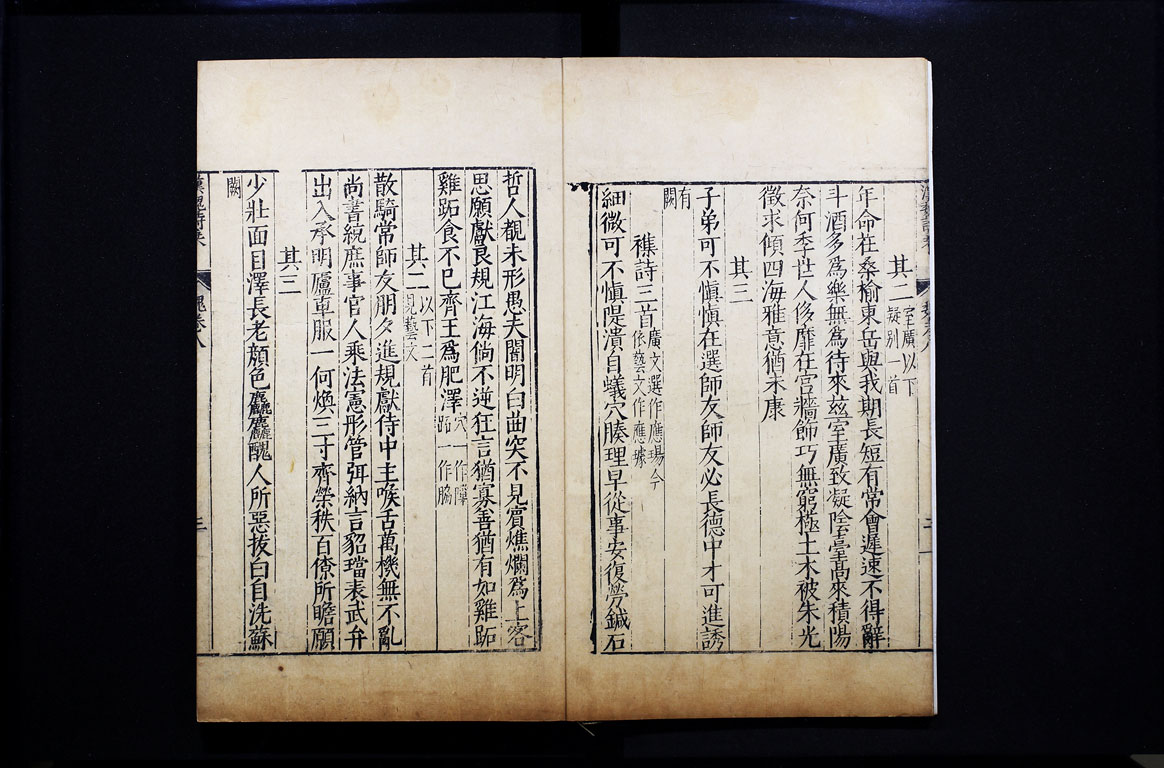 其二室廣以下
疑別一首
年命在桑榆東岳與我期長短有常會遲速不得辭
斗酒多為樂無為待來茲室廣致凝陰臺高來積陽
奈何季世人侈靡在宮墻飾巧無窮極土木被朱光
徵求傾四海雅意猶未康
其三
子弟可不慎慎在選師友師友必長德中才可進誘
有
闕
襍詩三首廣文選作應瑒今
依藝文作應璩
細微可不慎隄潰自蟻穴腠理早從事安復勞鍼石
哲人覩未形愚夫闇明白曲突不見賓燋爛為上客
思願獻良規江海倘不逆狂言猶寡善猶有如雞跖
雞跖食不已齊王為肥澤穴一作隟
跖一作䐁
其二以下二首
見藝文
散騎常師友朋夕進規獻侍中主喉舌萬機無不亂
尚書統庶事官人乘法憲彤管弭納言貂璫表武弁
出入承明廬車服一何煥三寸齊榮秩百僚所瞻願
其三
少壯面目澤長老顏色麤麤醜人所惡拔白自洗蘇
闕
漢魏詩乘
魏卷八
三